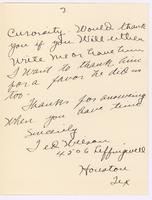 2
Curosity. Would thank
you if you will either
Write me or have him
I want to thank him
for a favor he did us
too.
Thanks for answering
When you have time
Sincerely
Ted Wilson
4506 Leffingwell
Houston
Tex